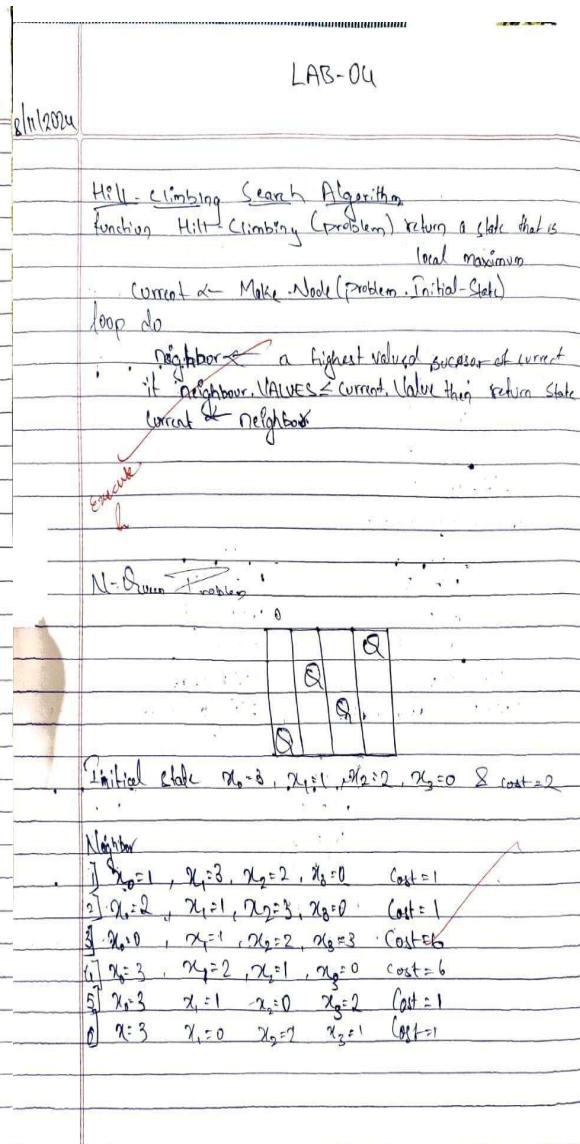 LAB-04
8/11/2024
Hill-Climbing Search Algorithm
function Hill-Climbing (problem) return a state that is
local maximum
Current ← Make-Node (problem.Initial-State)
loop do
neighbor ← a highest valued sucessor of current
if neighbour.VALUES ≤ Current.Value then return State
Current ← neighbour
Execute
N-Queen Problem
0
Q
Q
Q
Q
Initial state x₀=3, x₁=1, x₂=2, x₃=0 & cost=2
Neighbor
1] x₀=1, x₁=3, x₂=2, x₃=0 Cost=1
2] x₀=2, x₁=1, x₂=3, x₃=0 Cost=1
3] x₀=0, x₁=1, x₂=2, x₃=3 Cost=6
4] x₀=3, x₁=2, x₂=1, x₃=0 cost=6
5] x₀=3 x₁=1 x₂=0 x₃=2 Cost=1
6] x=3 x₁=0 x₂=2 x₃=1 Cost=1